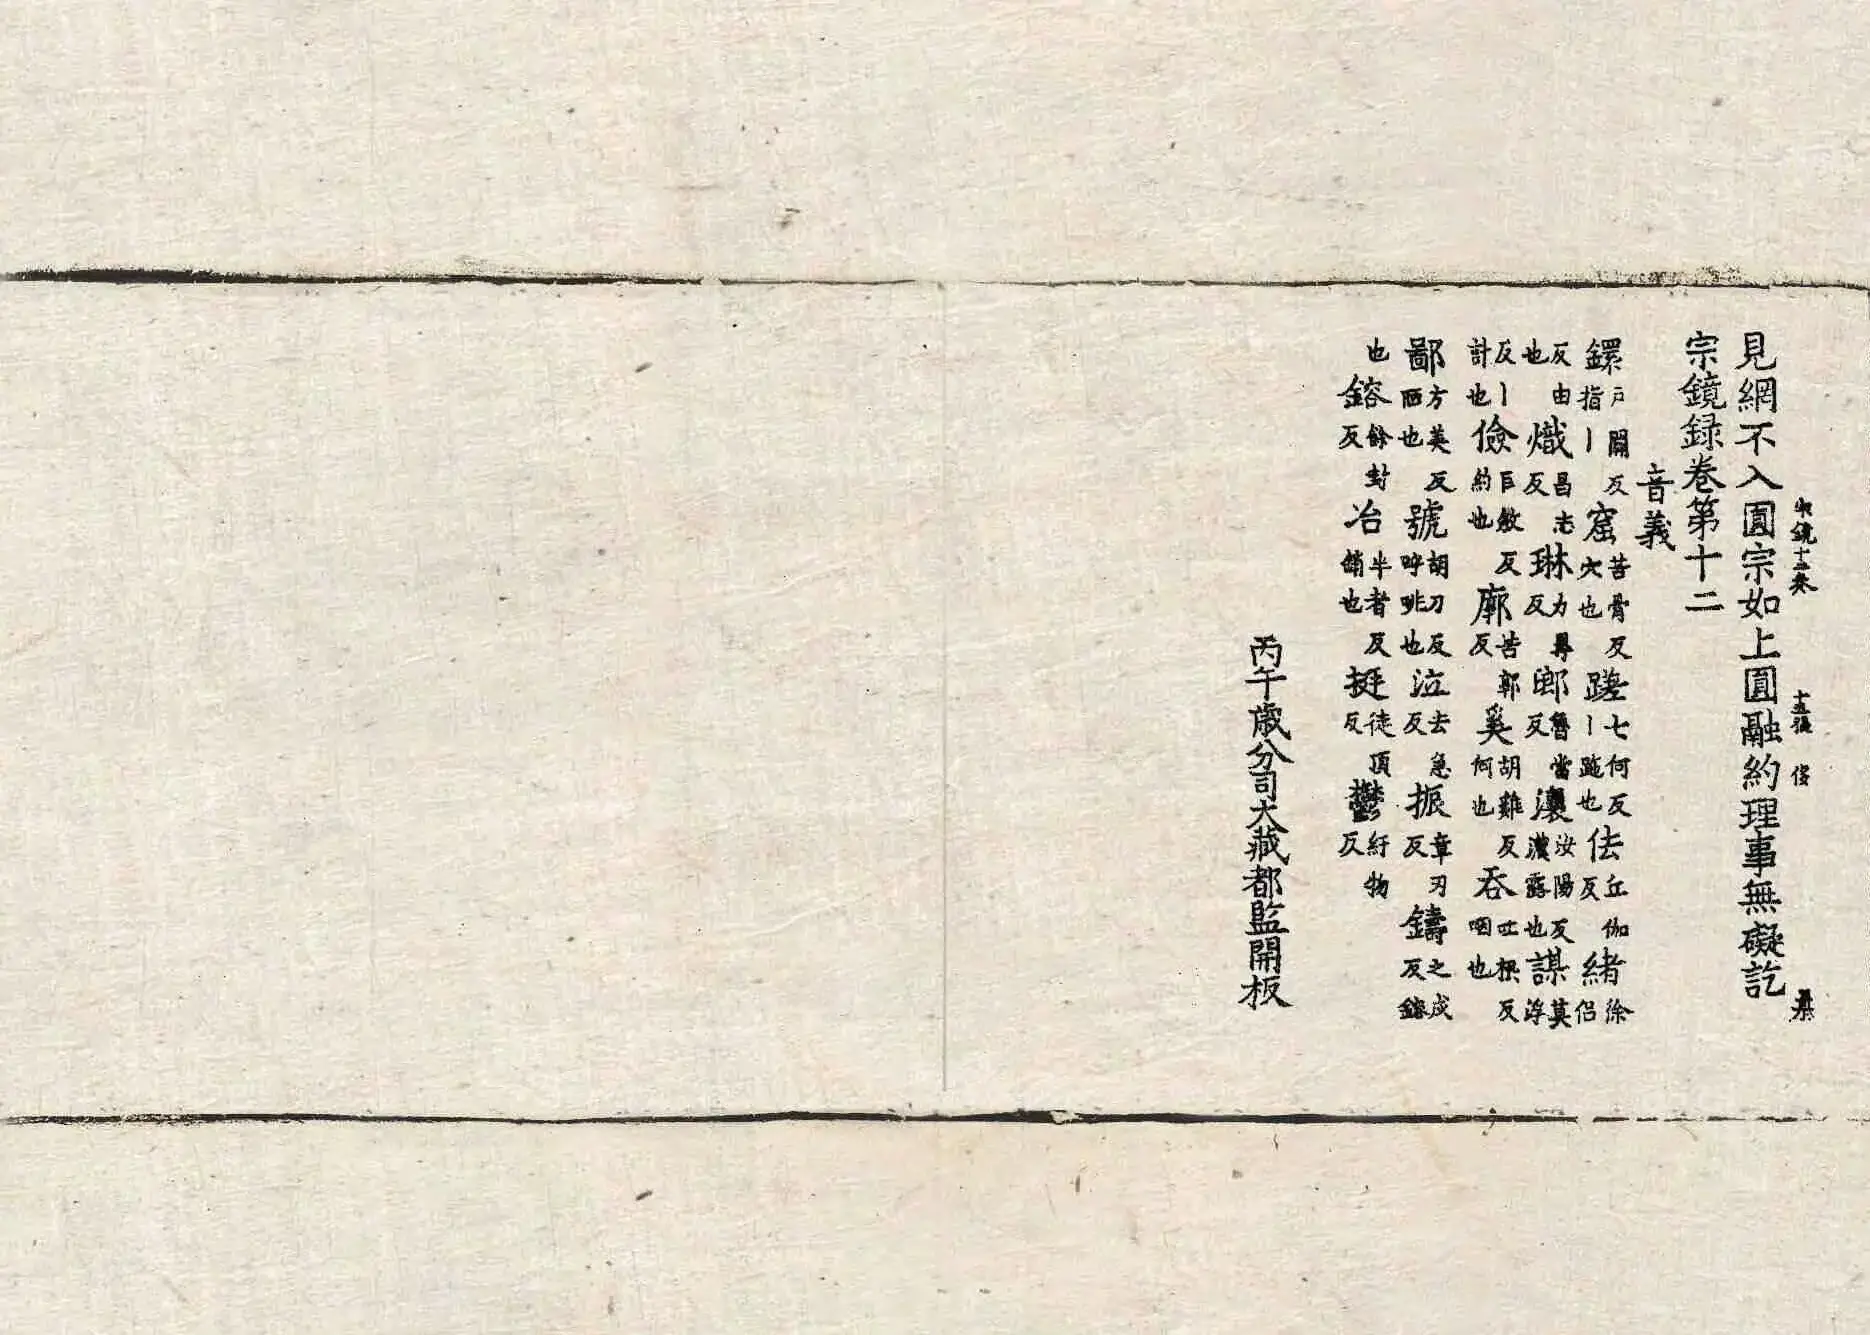 宗鏡十二卷 十五張 俊
見網不入圓宗如上圓融約理事無礙訖
宗鏡録卷第十二
音義
鐶戶關反指丨窟苦骨反穴也蹉七何反丨跎也佉丘伽反緒徐侶
反由也熾昌志反琳力尋反瑯魯當反瀼汝陽反濃露也謀莫浮
反丨計也儉巨斂反約也廓苦郭反奚胡雞反何也吞吐根反咽也
鄙方美反陋也號胡刀反呼咷也泣去急反振章刃反鑄之戍反鎔
也鎔餘封反冶羊者反銷也挺徒頂反鬱紆物反
丙午歲分司大藏都監開板